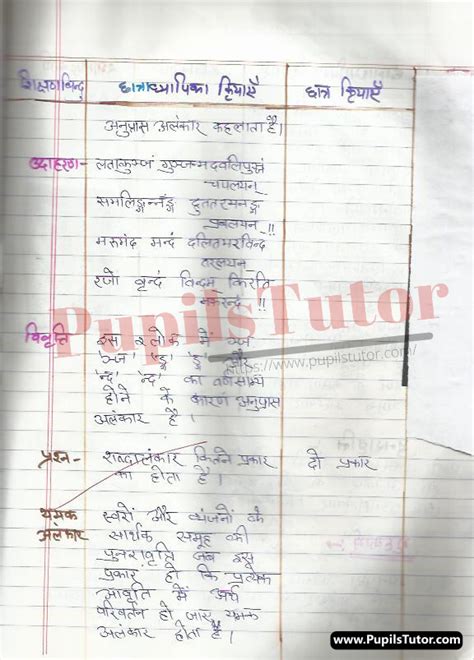 शिक्षणबिन्दु छात्राध्यापिका क्रियाएँ छात्र क्रियाएँ
अनुप्रास अलंकार कहलाता है।
उदाहरण- लताकुञ्जं गुञ्जन्मदवलिपुञ्जं
चपलयन्
समलिङ्गन्नङ्गं द्रुततरमनङ्गं
प्रबलयन् !!
मरुन्मंद मन्दं दलितमरविन्दं
तरलयन्
रजो वृन्दं विन्दन् किरति
मकरन्दं !!
PupilsTutor
https://www.pupilstutor.com/
विवृत्ति इस श्लोक में ञ्ज
'ञ्ज' 'ङ्ग' 'ङ्ग' और
'न्द' 'न्द' का वर्णसाम्य
होने के कारण अनुप्रास
अलंकार है।
प्रश्न- शब्दालंकार कितने प्रकार दो प्रकार
का होता है।
यमक स्वरों और व्यंजनों के
अलंकार सार्थक समूह की
पुनरावृत्ति जब इस
प्रकार हो कि प्रत्येक
आवृति में अर्थ
परिवर्तन हो जाए यमक
अलंकार होता है।
www.PupilsTutor.com